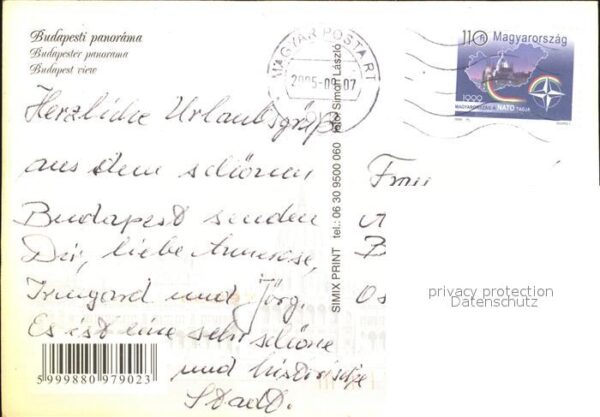 Budapesti panoráma
Budapester panorama
Budapest view
MAGYAR POSTA RT
2005-09.07
110 Ft Magyarország
1999
MAGYARORSZÁG A NATO TAGJA
Herzliche Urlaubsgrüße
aus dem schönen
Budapest senden
Dir, liebe Annerose,
Irmgard und Jörg.
Es ist eine sehr schöne
und historische
Stadt.
SIMIX PRINT tel.: 06 30 9500 060 Fotó: Simon László
Frau
privacy protection
Datenschutz
5 999880 979023